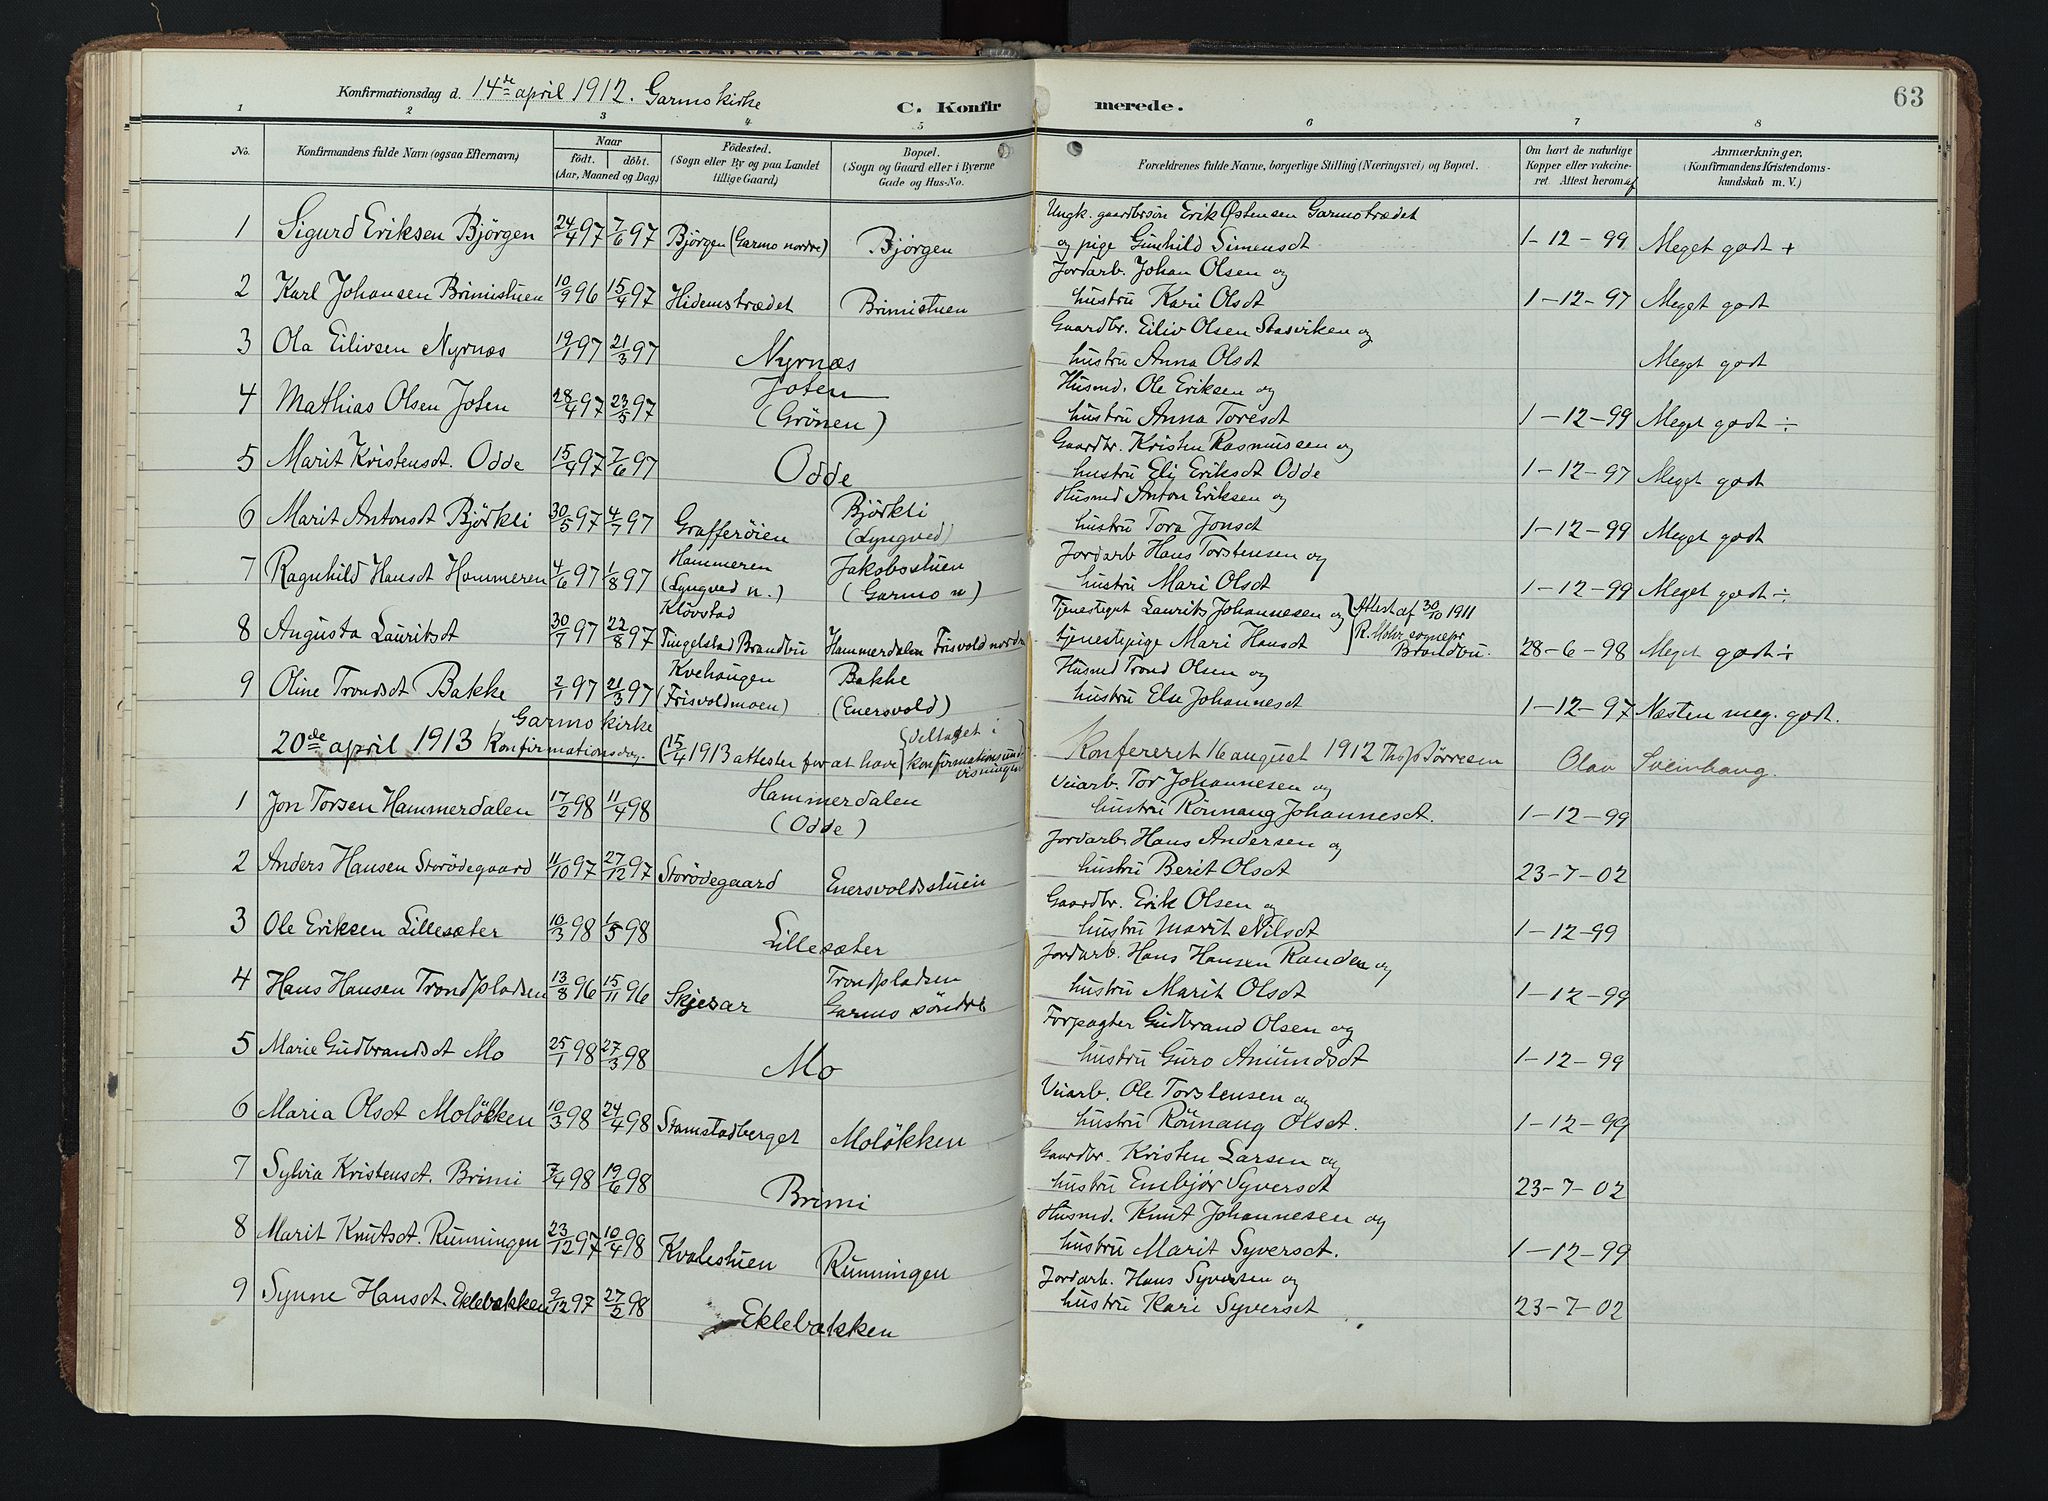 Konfirmationsdag d. 14de april 1912. Garmo kirke
C. Konfirmerede.
63
1 2 3 4 5 6 7 8
No. Konfirmandens fulde Navn (ogsaa Efternavn) Naar födt. döbt. (Aar, Maaned og Dag) Födested. (Sogn eller By og paa Landet tillige Gaard.) Bopæl. (Sogn og Gaard eller i Byerne Gade og Hus-No. Forældrenes fulde Navne, borgerlige Stilling (Næringsvei) og Bopæl. Om havt de naturlige Kopper eller vakcineret. Attest herom af Anmærkninger. (Konfirmandens Kristendomskundskab m. V.)
1 Sigurd Eriksen Bjørgen 24/4 97 7/6 97 Bjørgen (Garmo nordre) Bjørgen Ungk. gaardbrsøn Erik Østensen Garmotrædet
og pige Gunhild Simensdt 1-12-99 Meget godt +
2 Karl Johansen Brimistuen 10/9 96 15/4 97 Hidemstrædet Brimistuen Jordarb. Johan Olsen og
hustru Kari Olsdt 1-12-97 Meget godt
3 Ola Eilivsen Nyrnæs 19/1 97 21/3 97 Nyrnæs Gaardbr. Eiliv Olsen Stasviken og
hustru Anna Olsdt Meget godt
4 Mathias Olsen Joten 28/4 97 23/5 97 Joten (Grönen) Husmd. Ole Eriksen og
hustru Anna Toresdt 1-12-99 Meget godt ÷
5 Marit Kristensdt. Odde 15/4 97 7/6 97 Odde Gaardbr. Kristen Rasmussen og
hustru Eli Eriksdt Odde 1-12-97 Meget godt
6 Marit Antonsdt Björkli 30/5 97 4/7 97 Grafferøien Björkli (Lyngved) Husmd Anton Eriksen og
hustru Tora Jonsdt 1-12-99 Meget godt
7 Ragnhild Hansdt Hammeren 4/6 97 1/8 97 Hammeren (Lyngved n.) Jakobsstuen (Garmo n) Jordarb Hans Torstensen og
hustru Mari Olsdt 1-12-99 Meget godt ÷
8 Augusta Lauritsdt 30/7 97 22/8 97 Klövstad Tingelstad Brandbu Hammerdalen Frisvold nordre Tjenestegut Laurits Johannesen og
tjenestepige Mari Hansdt Attest af 30/10 1911 R. Mohr sognepr Brandbu. 28-6-98 Meget godt ÷
9 Oline Trondsdt Bakke 2/1 97 21/3 97 Kvehaugen (Frisvoldmoen) Bakke (Enersvold) Husmd Trond Olsen og
hustru Else Johannesdt 1-12-97 Næsten meg. godt.
20de april 1913 Garmo kirke Konfirmationsdag. (15/4 1913 attester for at have deltaget i konfirmationsundervisningen) Konfereret 16 august 1912 Ths Tørresen Olav Sveinhaug.
1 Jon Torsen Hammerdalen 17/2 98 11/4 98 Hammerdalen (Odde) Veiarb. Tor Johannesen og
hustru Rönnaug Johannesdt. 1-12-99
2 Anders Hansen Storödegaard 11/10 97 27/12 97 Storödegaard Enersvoldsstuen Jordarb. Hans Andersen og
hustru Berit Olsdt 23-7-02
3 Ole Eriksen Lillesæter 10/3 98 1/5 98 Lillesæter Gaardbr. Erik Olsen og
hustru Marit Nilsdt 1-12-99
4 Hans Hansen Trondpladsen 13/8 96 15/11 96 Skjesar Trondpladsen Garmo söndre Jordarb. Hans Hansen Randen og
hustru Marit Olsdt 1-12-99
5 Marie Gudbrandsdt Mo 25/1 98 27/3 98 Mo Forpagter Gudbrand Olsen og
hustru Guro Amundsdt 1-12-99
6 Maria Olsdt Molökken 10/3 98 24/4 98 Stamstadberget Molökken Veiarb. Ole Torstensen og
hustru Rönnaug Olsdt. 1-12-99
7 Sylvia Kristensdt. Brimi 7/4 98 19/6 98 Brimi Gaardbr. Kristen Larsen og
hustru Embjør Syversdt 23-7-02
8 Marit Knutsdt. Runningen 23/12 97 10/4 98 Kvalestuen Runningen Husmd. Knut Johannesen og
hustru Marit Syversdt. 1-12-99
9 Synne Hansdt. Eklebakken 9/12 97 27/2 98 Eklebakken Jordarb. Hans Syversen og
hustru Kari Syversdt 23-7-02